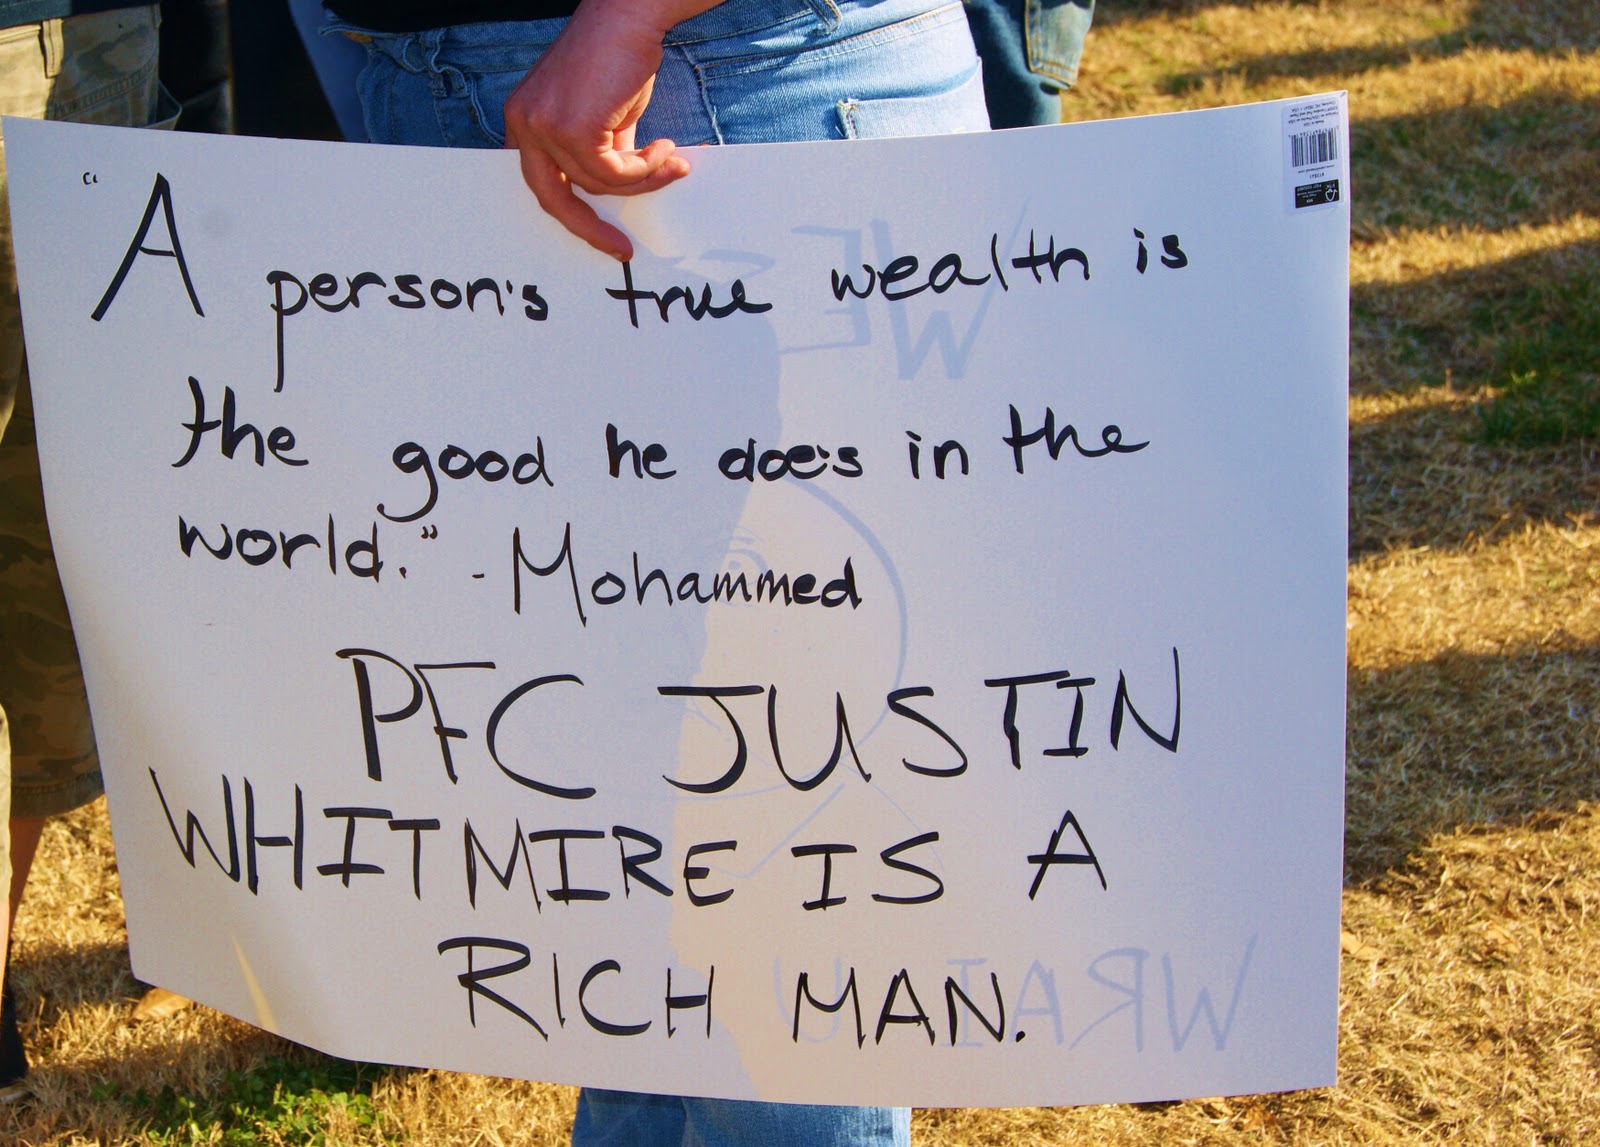 “A person's true wealth is
the good he does in the
world.” - Mohammed
PFC JUSTIN
WHITMIRE IS A
RICH MAN.